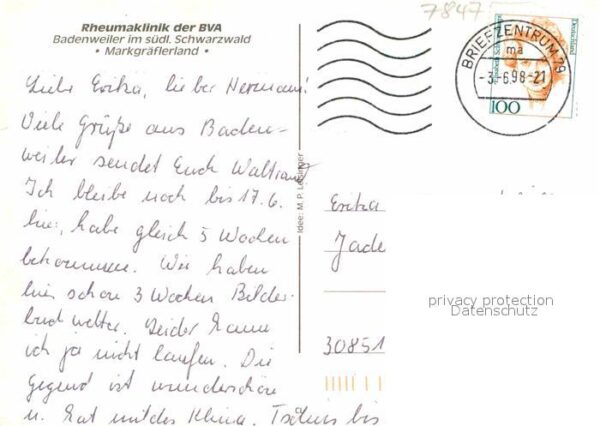 7847
Rheumaklinik der BVA
Badenweiler im südl. Schwarzwald
• Markgräflerland •
BRIEFZENTRUM 79
ma
-3.-6.98-21
Deutschland
100
Liebe Erika, lieber Hermann!
Viele Grüße aus Baden-
weiler sendet Euch Waltraut
Ich bleibe noch bis 17.6.
hier, habe gleich 5 Wochen
bekommen. Wir haben
hier schon 3 Wochen Bilder-
buchwetter. Leider kann
ich ja nicht laufen. Die
Gegend ist wunderschön
u. hat mildes Klima. Tschüss bis
Idee: M. P.
Erika
Jade
30851
privacy protection
Datenschutz